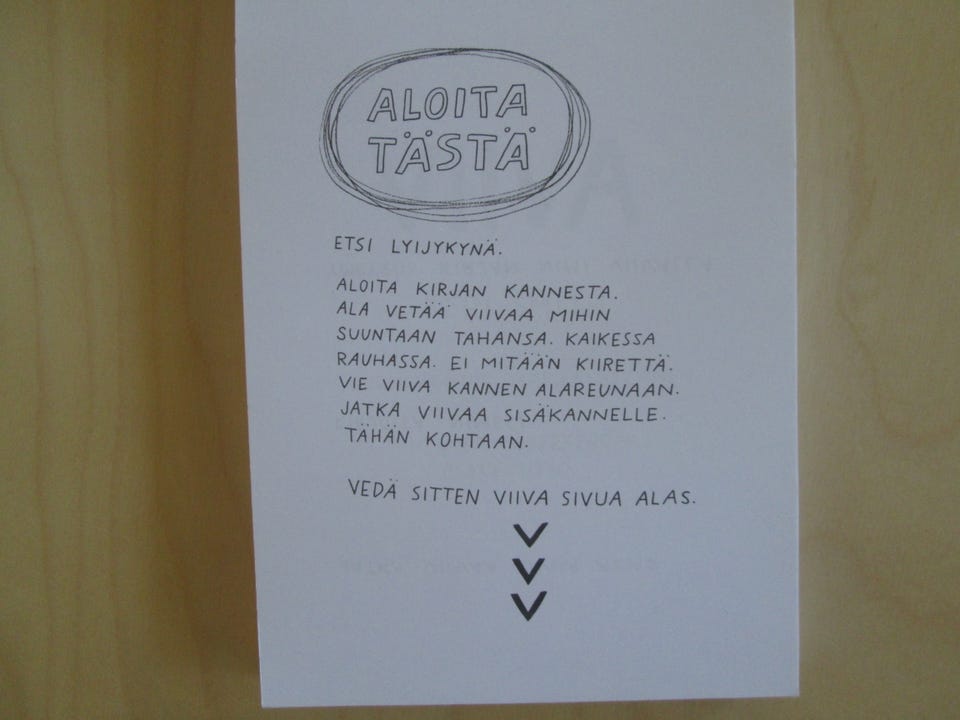 ALOITA
TÄSTÄ
ETSI LYIJYKYNÄ.
ALOITA KIRJAN KANNESTA.
ALA VETÄÄ VIIVAA MIHIN
SUUNTAAN TAHANSA. KAIKESSA
RAUHASSA. EI MITÄÄN KIIRETTÄ.
VIE VIIVA KANNEN ALAREUNAAN.
JATKA VIIVAA SISÄKANNELLE.
TÄHÄN KOHTAAN.
VEDÄ SITTEN VIIVA SIVUA ALAS.